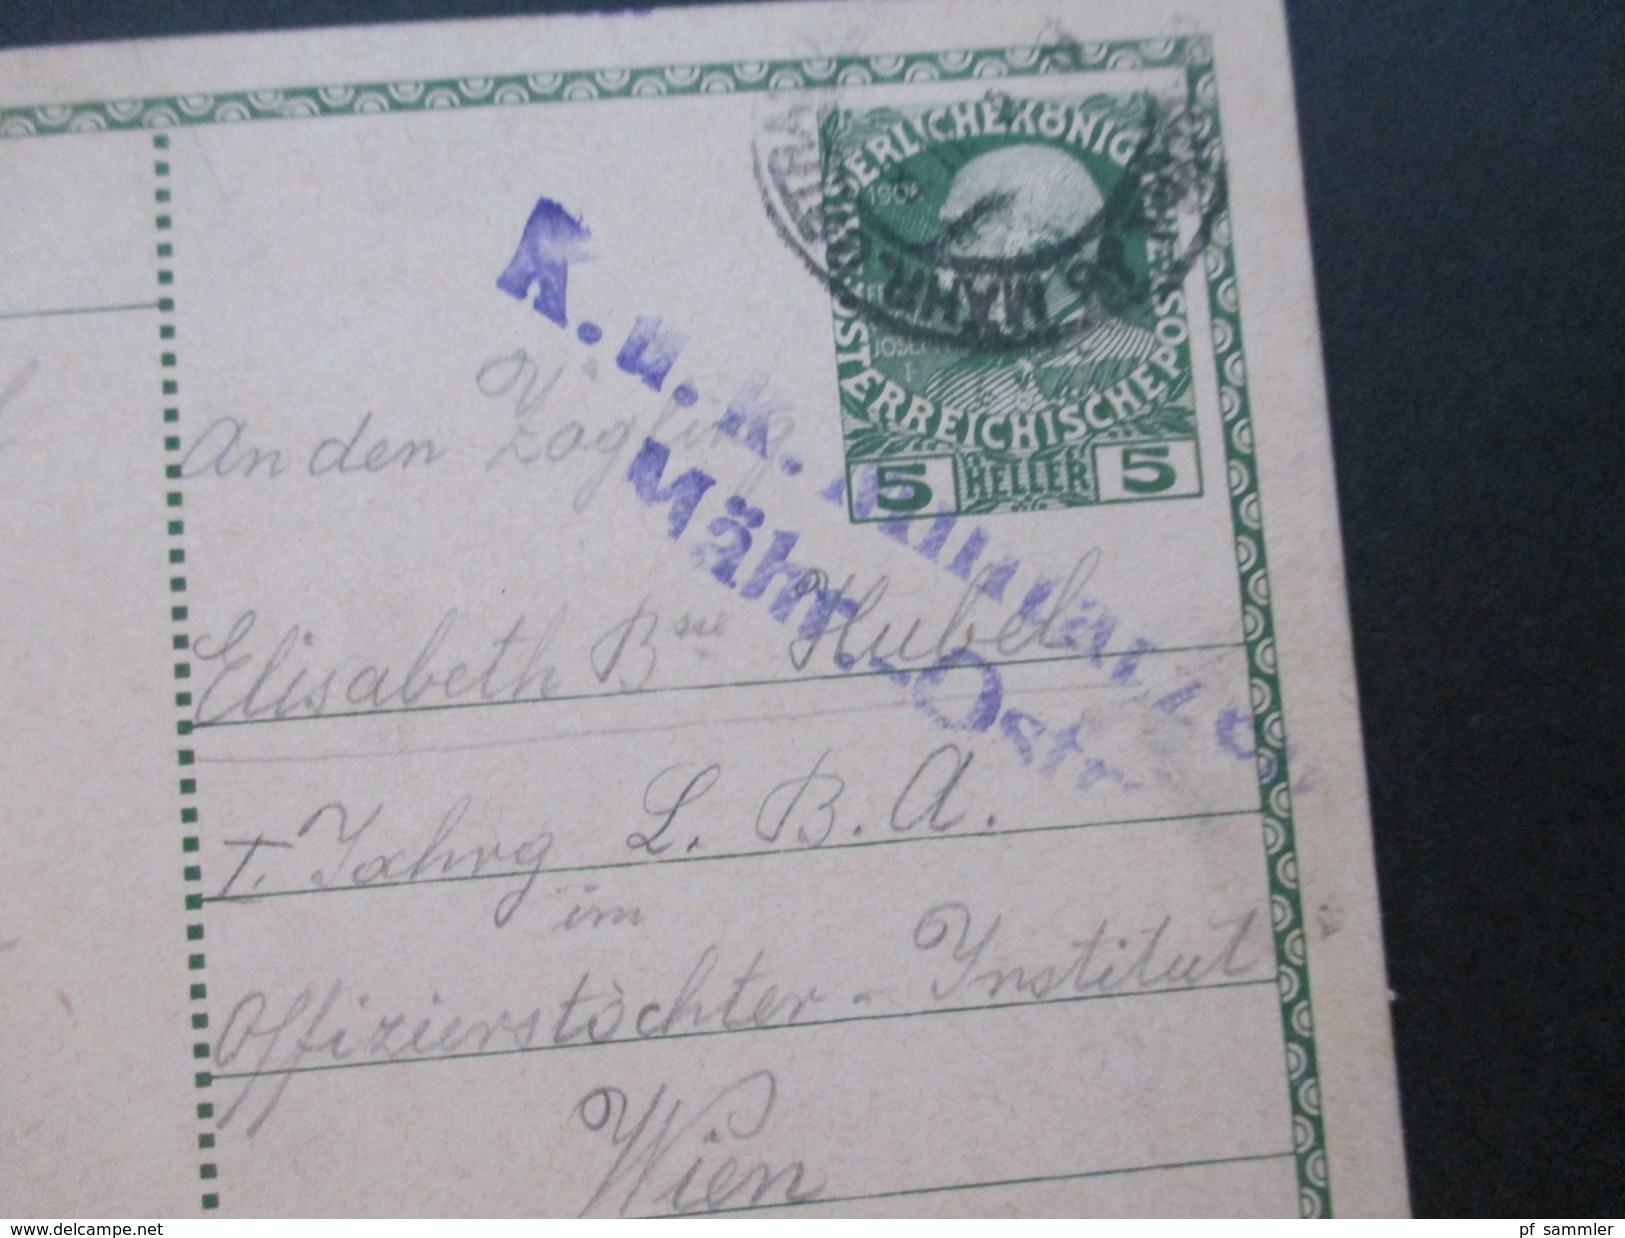 KAISERLICHEKÖNIGLICHEPOST
ÖSTERREICHISCHEPOST
1908
JOSEF
I
5 HELLER 5
MÄHR. O
K. u. K. Militärzensur
Mähr.-Ostr.
An den Zögling
Elisabeth Bsse Hubel
I. Jahrg L. B. A.
im
Offizierstöchter-Institut
Wien
www.delcampe.net
pf_sammler